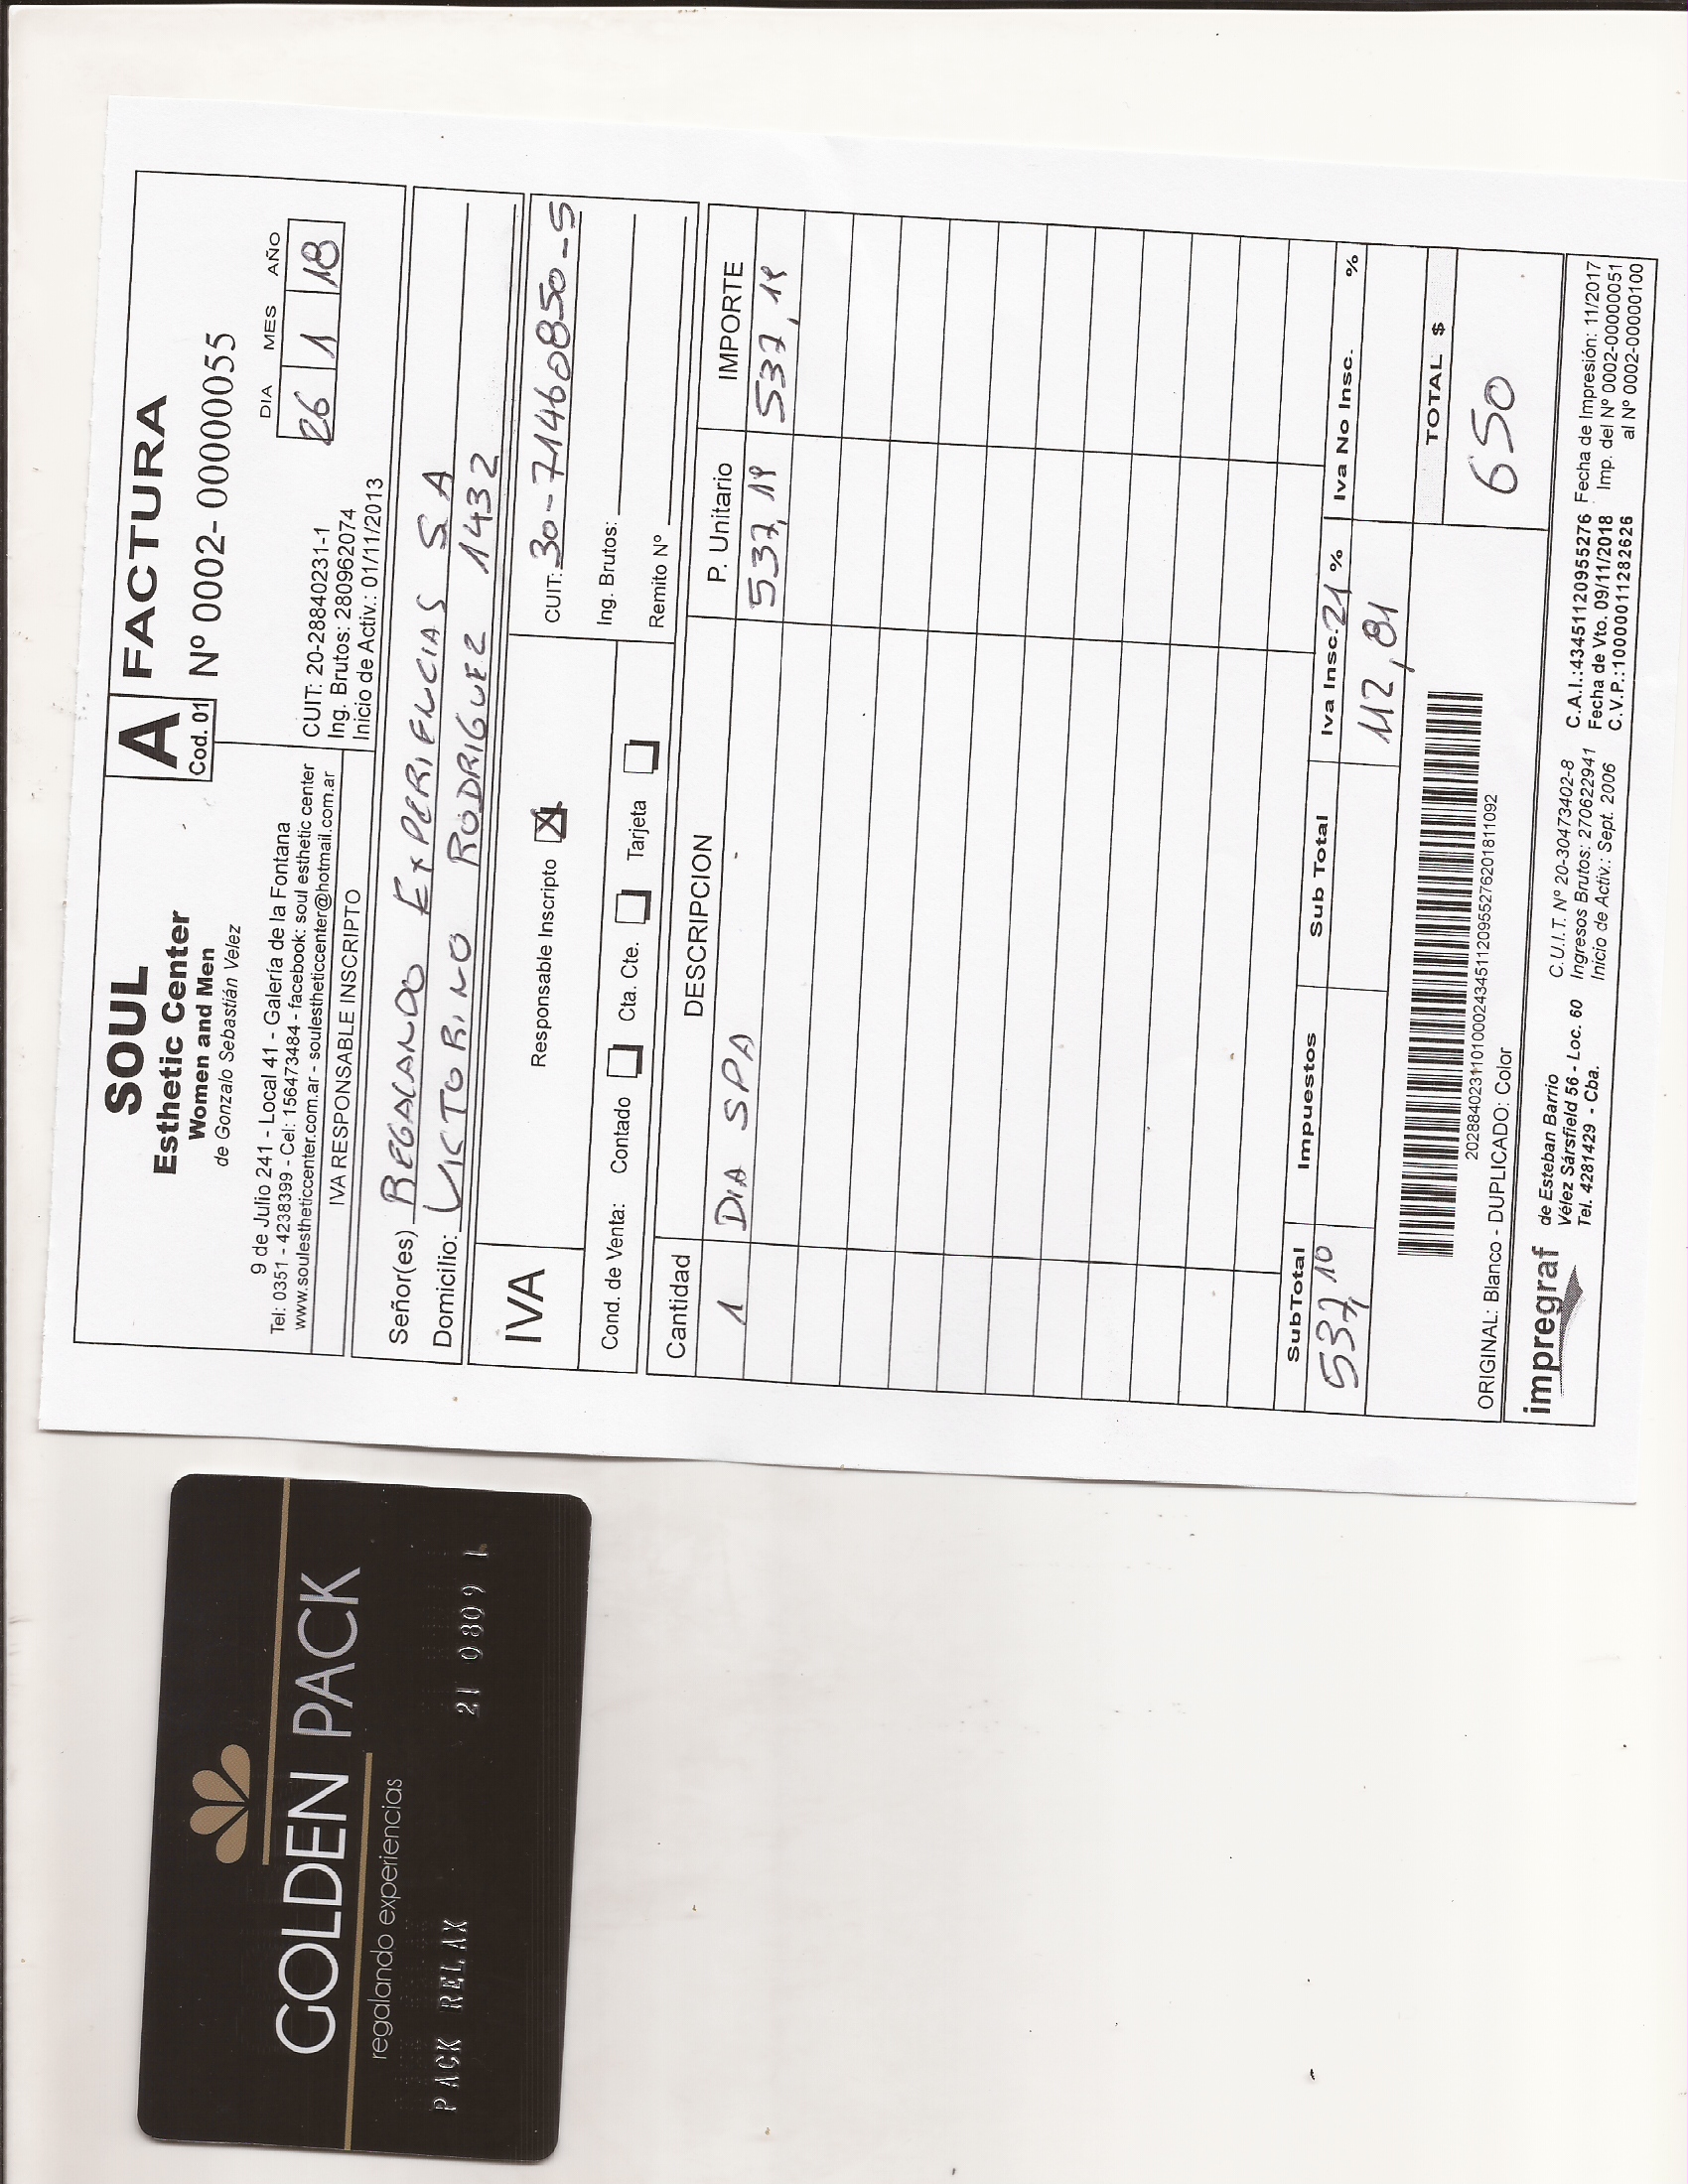 SOUL
Esthetic Center
Women and Men
de Gonzalo Sebastián Velez
9 de Julio 241 - Local 41 - Galería de la Fontana
Tel: 0351 - 4238399 - Cel: 156473484 - facebook: soul esthetic center
www.soulestheticcenter.com.ar - soulestheticcenter@hotmail.com.ar
IVA RESPONSABLE INSCRIPTO
A
Cod. 01
FACTURA
Nº 0002- 00000055
DIA MES AÑO
26 1 18
CUIT: 20-28840231-1
Ing. Brutos: 280962074
Inicio de Activ.: 01/11/2013
Señor(es) REGALANDO EXPERIENCIAS S A
Domicilio: VICTORINO RODRIGUEZ 1432
IVA Responsable Inscripto X
CUIT: 30-71460850-5
Cond. de Venta: Contado Cta. Cte. Tarjeta
Ing. Brutos:
Remito Nº
Cantidad DESCRIPCION P. Unitario IMPORTE
1 DIA SPA 537,19 537,19
SubTotal Impuestos Sub Total Iva Insc. 21 % Iva No Insc. %
537,10 112,81
TOTAL $
650
2028840231101000243451120955276201811092
ORIGINAL: Blanco - DUPLICADO: Color
impregraf
de Esteban Barrio
Vélez Sársfield 56 - Loc. 60
Tel. 4281429 - Cba.
C.U.I.T. Nº 20-30473402-8
Ingresos Brutos: 270622941
Inicio de Activ.: Sept. 2006
C.A.I.:43451120955276
Fecha de Vto. 09/11/2018
C.V.P.:10000011282626
Fecha de Impresión: 11/2017
Imp. del Nº 0002-00000051
al Nº 0002-00000100
GOLDEN PACK
regalando experiencias
PACK RELAX